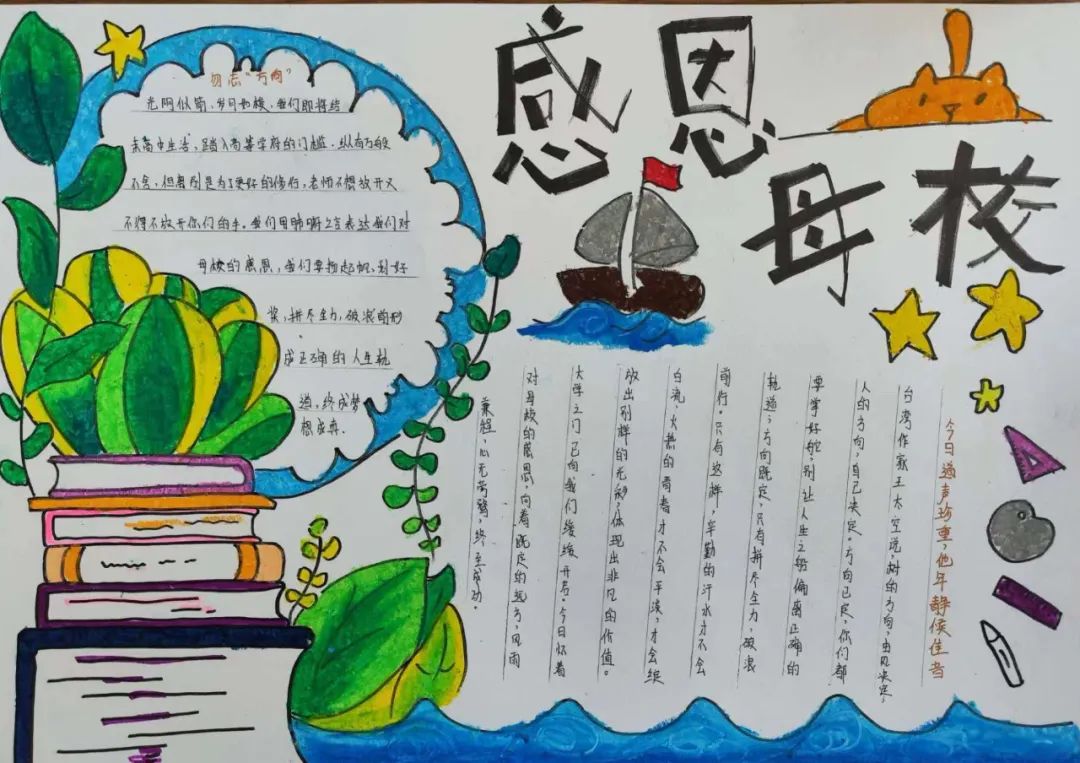 感恩
母校
勿忘“方向”
光阴似箭，岁月如梭，我们即将结
束高中生活，踏入高等学府的门槛．纵有万般
不舍，但离别是为了更好的修行，老师不想放开又
不得不放开你们的手。我们用肺腑之言表达我们对
母校的感恩，我们要扬起帆，划好
桨，拼尽全力，破浪前行
成正确的人生轨
道，终成梦
想成真．
今日道声珍重，他年静候佳音
台湾作家王大空说，树的方向，由风决定，
人的方向，自己决定。方向已定，你们都
要掌好舵，别让人生之船偏离正确的
轨道；方向既定，只有拼尽全力，破浪
前行。只有这样，辛勤的汗水才不会
白流，火热的青春才不会平淡，才会绽
放出别样的光彩，体现出非凡的价值。
大学之门已向我们缓缓开启。今日怀着
对母校的感恩，向着既定的远方，风雨
兼程，心无旁骛，终至成功。